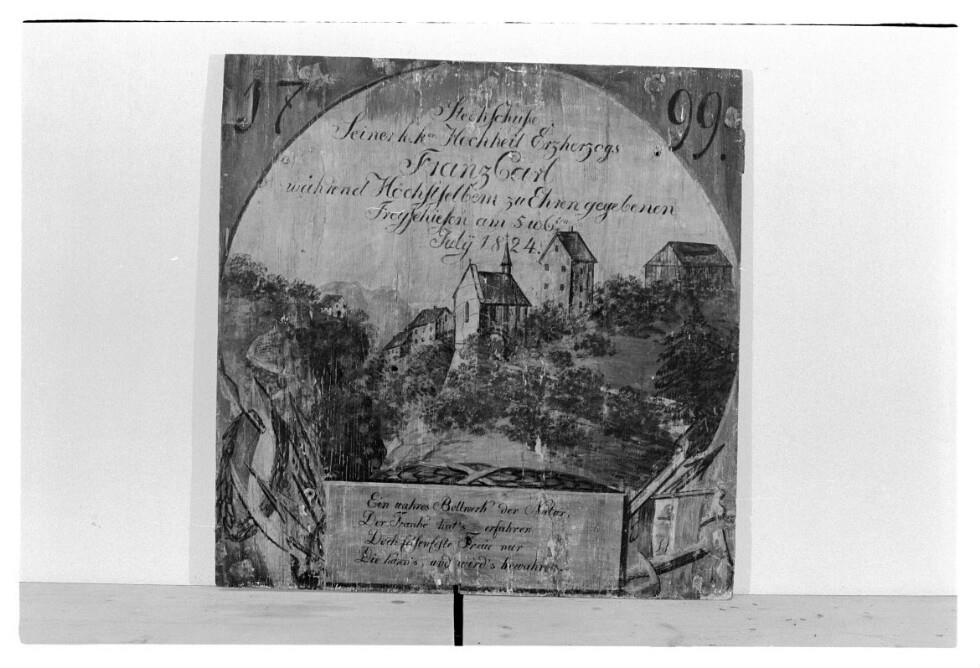 17 99.
Stechschuße
Seiner k. k.en Hochheit Erzherzogs
Franz Carl
während Höchstselbem zu Ehren gegebenen
Freyschießen am 5 u 6ten
Julÿ 1824.
Ein wahres Bollwerk der Natur,
Der Franke hat's erfahren
Doch felsenfeste Treue nur
Die kann's, und wird's bewahren